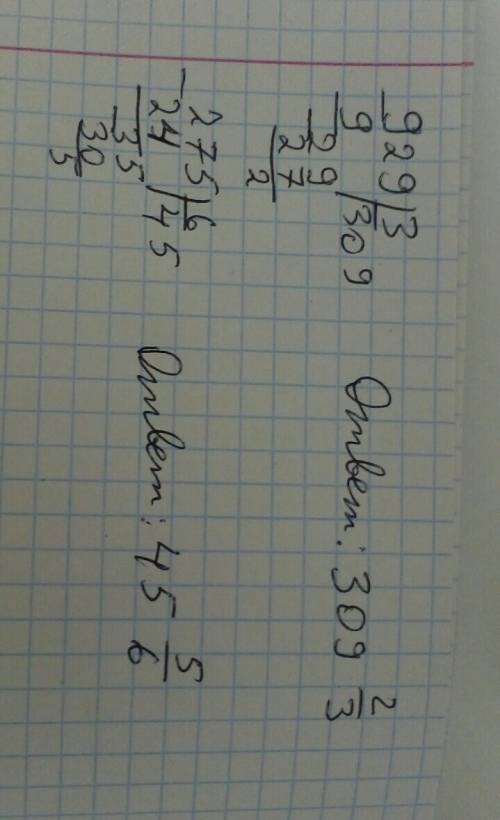 929 | 3
9 | 309
29
27
2
Ответ: 309 2/3
275 | 6
24 | 45
35
30
5
Ответ: 45 5/6